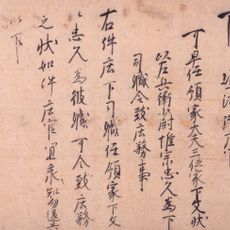 下
可早任領家大夫三位家下文状
以左兵衛少尉惟宗忠久為下
司職令致庄務事
右件庄下司職任領家下文
以忠久為彼職可令致庄務
之状如件庄官宜承知勿遺
以下